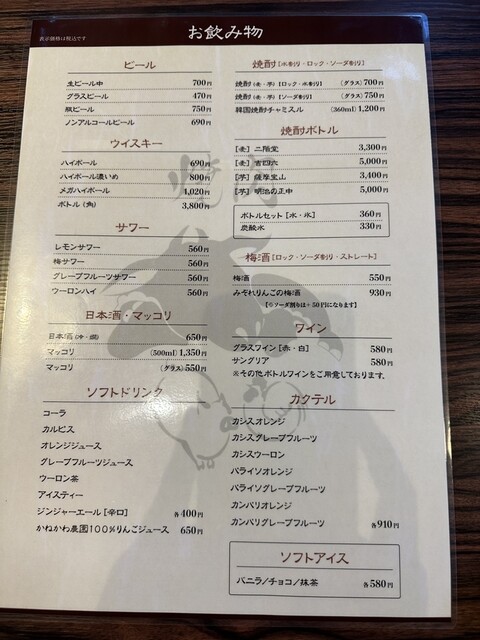 表示価格は税込です
お飲み物
ビール
生ビール中 700円
グラスビール 470円
瓶ビール 750円
ノンアルコールビール 690円
ウイスキー
ハイボール 690円
ハイボール濃いめ 800円
メガハイボール 1,020円
ボトル (角) 3,800円
サワー
レモンサワー 560円
梅サワー 560円
グレープフルーツサワー 560円
ウーロンハイ 560円
日本酒・マッコリ
日本酒 (冷・燗) 650円
マッコリ (500ml) 1,350円
マッコリ (グラス) 550円
ソフトドリンク
コーラ
カルピス
オレンジジュース
グレープフルーツジュース
ウーロン茶
アイスティー
ジンジャーエール [辛口] 各400円
かねかわ農園100%りんごジュース 650円
焼酎 [水割り・ロック・ソーダ割り]
焼酎 (麦・芋) [ロック・水割り] (グラス) 700円
焼酎 (麦・芋) [ソーダ割り] (グラス) 750円
韓国焼酎チャミスル (360ml) 1,200円
焼酎ボトル
[麦] 二階堂 3,300円
[麦] 吉四六 5,000円
[芋] 薩摩宝山 3,400円
[芋] 明治の正中 5,000円
ボトルセット [水・氷] 360円
炭酸水 330円
梅酒 [ロック・ソーダ割り・ストレート]
梅酒 550円
みぞれりんごの梅酒 930円
【※ソーダ割りは+50円になります】
ワイン
グラスワイン [赤・白] 580円
サングリア 580円
※その他ボトルワインをご用意しております。
カクテル
カシスオレンジ
カシスグレープフルーツ
カシスウーロン
パライソオレンジ
パライソグレープフルーツ
カンパリオレンジ
カンパリグレープフルーツ 各910円
ソフトアイス
バニラ/チョコ/抹茶 各580円
焼肉